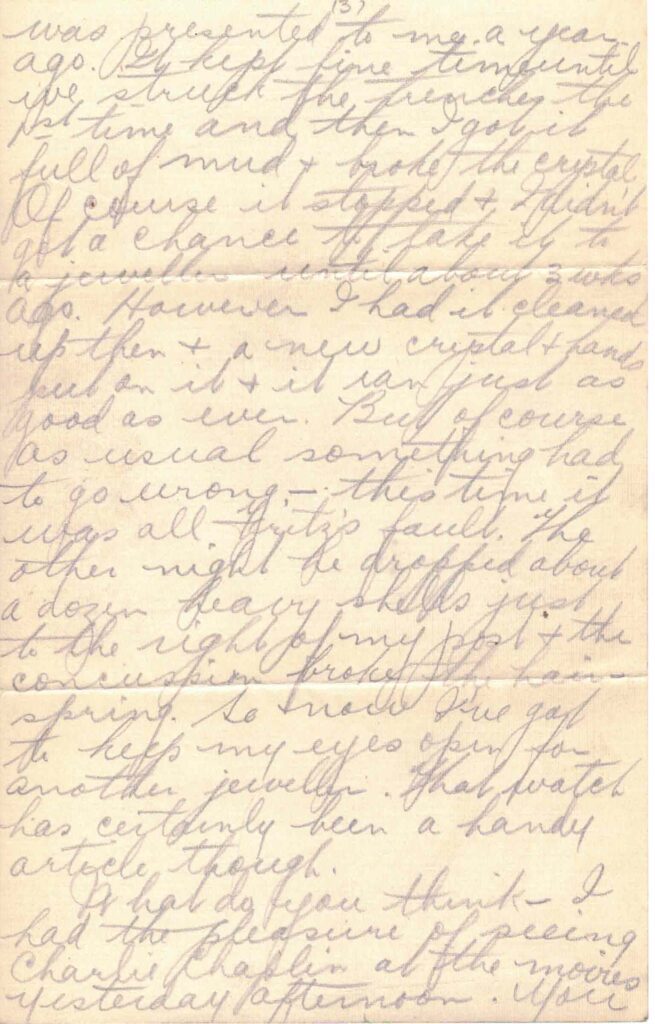 (3)
was presented to me a year
ago. It kept fine time until
we struck the trenches the
1st time and then I got it
full of mud + broke the crystal
Of course it stopped + I didn't
get a chance to take it to
a jeweller until about 3 wks
ago. However I had it cleaned
up then + a new crystal + hands
put on it + it ran just as
good as ever. But of course
as usual something had
to go wrong – this time it
was all "Fritz's" fault. The
other night he dropped about
a dozen heavy shells just
to the right of my post + the
concussion broke the hair-
spring. So now I've got
to keep my eyes open for
another jeweller. That watch
has certainly been a handy
article though.
What do you think – I
had the pleasure of seeing
Charlie Chaplin at the movies
yesterday afternoon. You